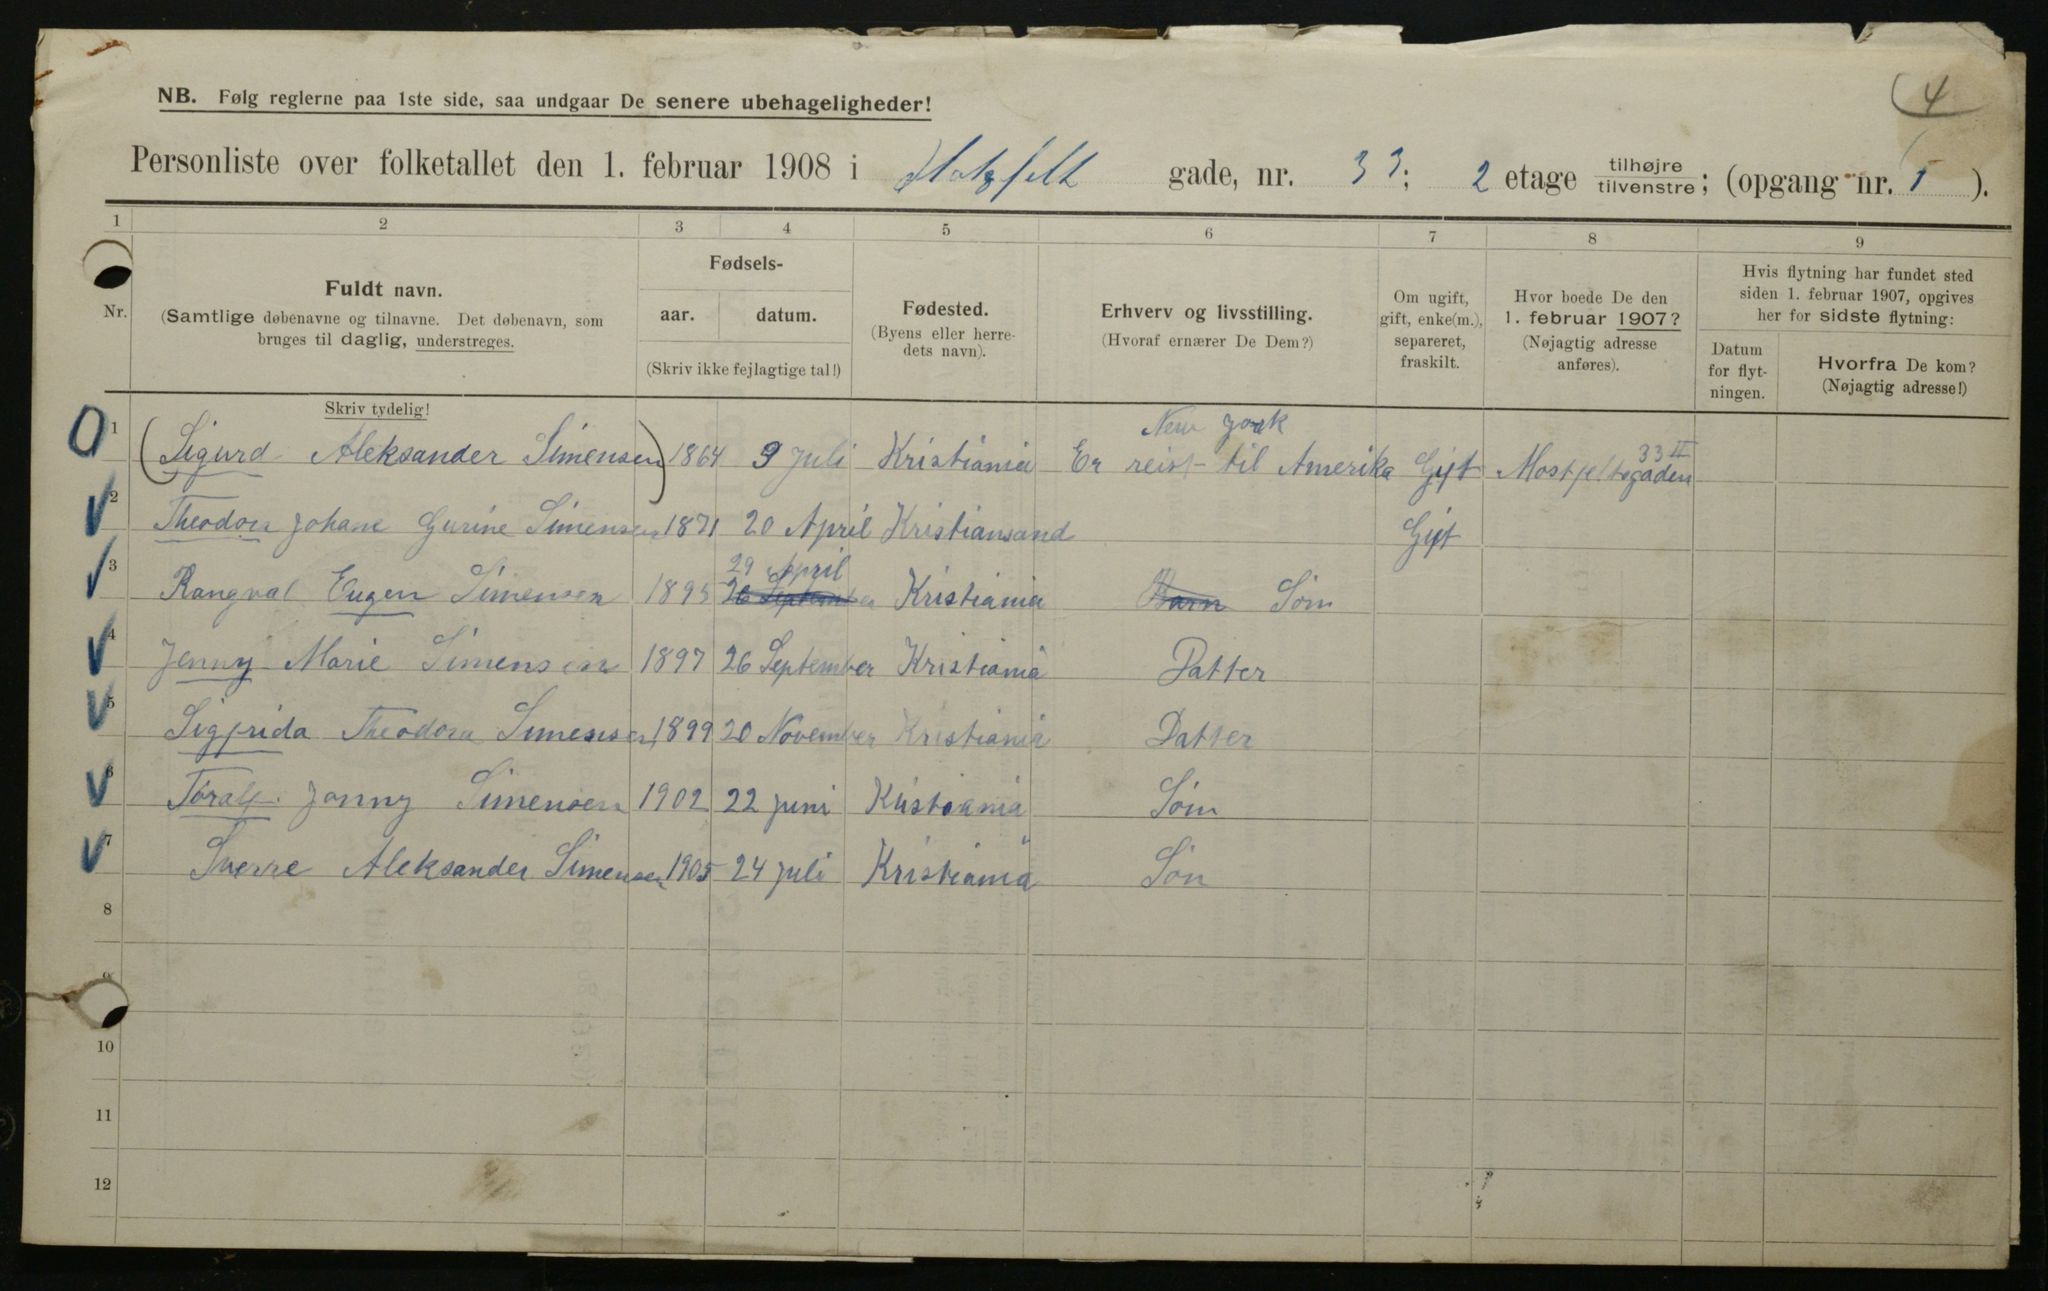 4
NB. Følg reglerne paa 1ste side, saa undgaar De senere ubehageligheder!
Personliste over folketallet den 1. februar 1908 i gade, nr. 33; 2 etage tilhøjre tilvenstre; (opgang nr. 1 ).
1 2 3 4 5 6 7 8 9
Nr.
Fuldt navn.
(Samtlige døbenavne og tilnavne. Det døbenavn, som
bruges til daglig, understreges.
Skriv tydelig!
Fødsels-
aar. datum.
(Skriv ikke fejlagtige tal!)
Fødested.
(Byens eller herre-
dets navn).
Erhverv og livsstilling.
(Hvoraf ernærer De Dem?)
Om ugift,
gift, enke(m.),
separeret,
fraskilt.
Hvor boede De den
1. februar 1907?
(Nøjagtig adresse
anføres).
Hvis flytning har fundet sted
siden 1. februar 1907, opgives
her for sidste flytning:
Datum
for flyt-
ningen.
Hvorfra De kom?
(Nøjagtig adresse!)
New York
33 II
1 (Sigurd Aleksander Simensen) 1864 9 Juli Kristiania Er reist til Amerika Gift Mostfeltsgaden
2 Theodora Johane Gurine Simensen 1871 20 April Kristiansand Gift
29 April
3 Rangval Eugen Simensen 1895 26 September Kristiania Barn Søn
4 Jenny Marie Simensen 1897 26 September Kristiania Datter
5 Sigfrida Theodora Simensen 1899 20 November Kristiania Datter
6 Toralf Jonny Simensen 1902 22 Juni Kristiania Søn
7 Sverre Aleksander Simensen 1905 24 Juli Kristiania Søn
8
9
10
11
12